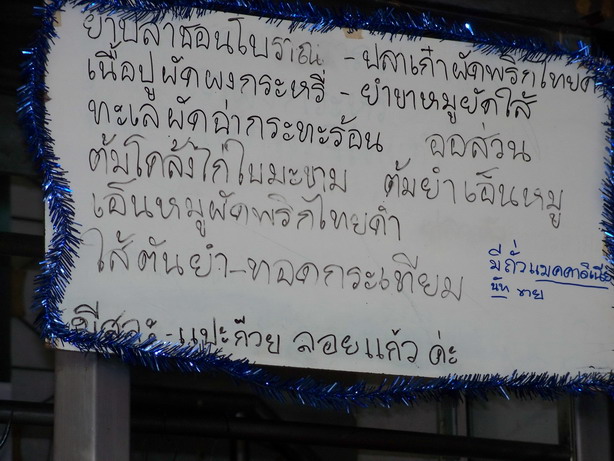 ยำปลาช่อนโบราณ - ปลาเก๋าผัดพริกไทยดำ
เนื้อปูผัดผงกระหรี่ - ยำขาหมูยัดใส้
ทะเลผัดฉ่ากระทะร้อน ออส่วน
ต้มโคล้งไก่ใบมะขาม ต้มยำเอ็นหมู
เอ็นหมูผัดพริกไทยดำ
ไส้ตันยำ-ทอดกระเทียม
มีถั่วแมคคาดิเมีย
นัท ขาย
-แปะก๊วย ลอยแก้ว ค่ะ